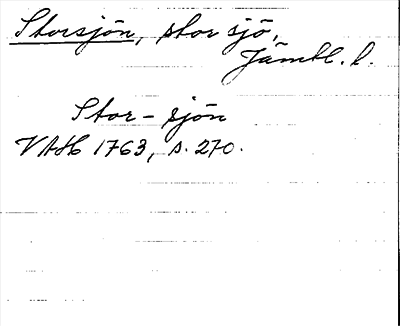 Storsjön, stor sjö,
Jämtl. l.
Stor-sjön
VAH 1763, s. 270.